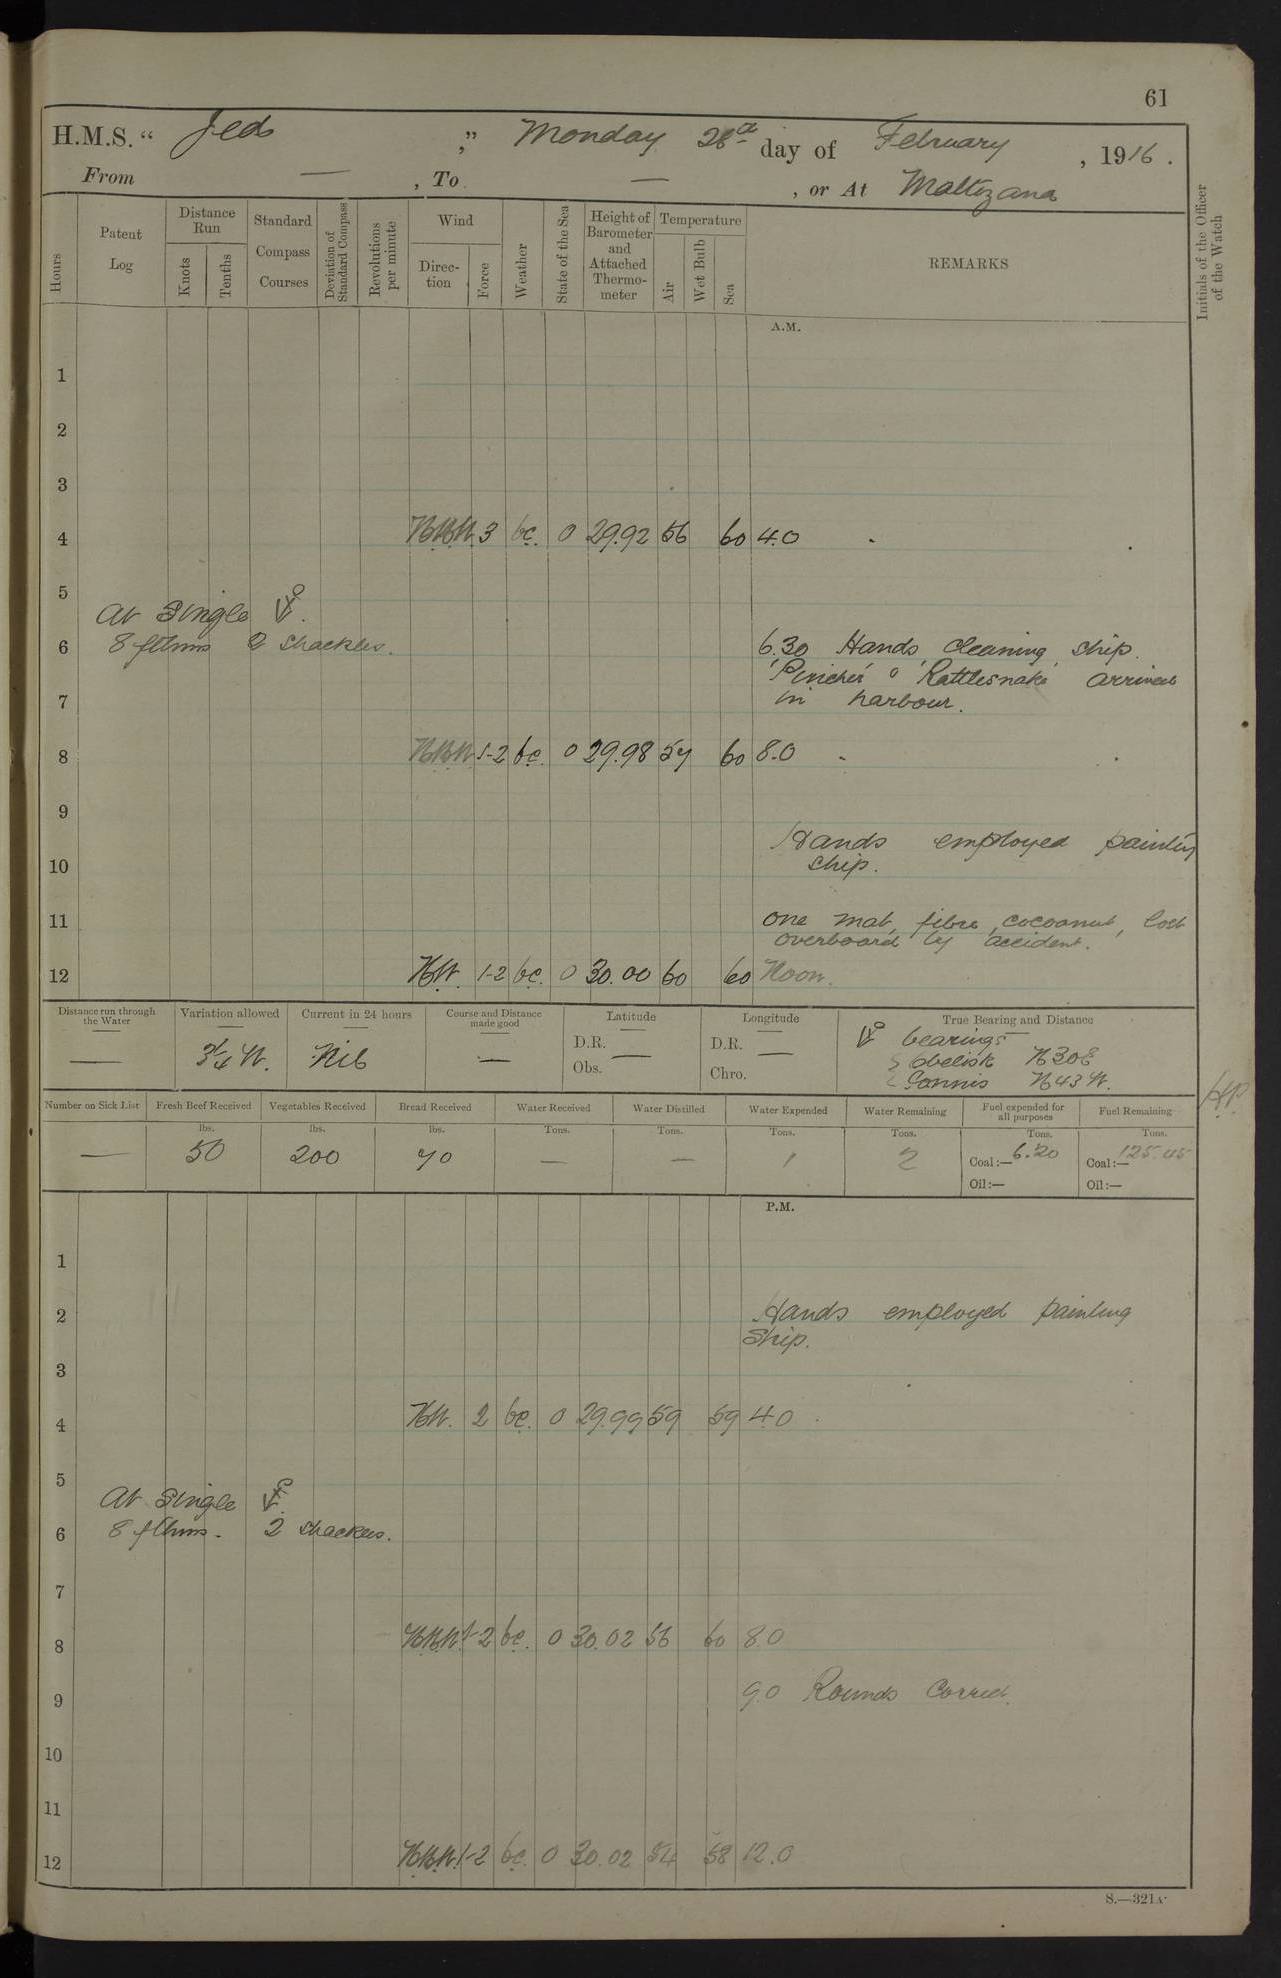 61
H.M.S. “ Jed ,” Monday 28th day of February , 1916 .
From — , To — , or At Maltezana
Hours Patent Log Distance Run Knots Tenths Standard Compass Courses Deviation of Standard Compass Revolutions per minute Wind Direction Force Weather State of the Sea Height of Barometer and Attached Thermometer Temperature Air Wet Bulb Sea REMARKS Initials of the Officer of the Watch
A.M.
1
2
3
4 3 bc. 0 29.92 56 60 4.0
5
At Single
6 8 fthms 2 shackles. 6.30 Hands cleaning ship.
'Pincher' & 'Rattlesnake' arrived
7 in harbour.
8 1-2 bc. 0 29.98 57 60 8.0
9
Hands employed painting
10 ship.
11 One mat, fibre, cocoanut, lost
overboard by accident.
12 NW. 1-2 bc. 0 30.00 60 60 Noon.
Distance run through the Water Variation allowed Current in 24 hours Course and Distance made good Latitude Longitude True Bearing and Distance
— 3¼ W. Nil — D.R. Obs. — D.R. Chro. — bearings
Obelisk N30E
N43W.
Number on Sick List Fresh Beef Received Vegetables Received Bread Received Water Received Water Distilled Water Expended Water Remaining Fuel expended for all purposes Fuel Remaining
lbs. lbs. lbs. Tons. Tons. Tons. Tons. Tons. Tons.
— 50 200 70 — — 1 2 Coal:— 6.20 Coal:— 125.45
Oil:— Oil:—
P.M.
1
2 Hands employed painting
Ship.
3
4 NW. 2 bc. 0 29.99 59 59 4.0
5
At Single
6 8 fthms. 2 shackles.
7
8 1-2 bc. 0 30.02 56 60 8.0
9 9.0 Rounds Correct.
10
11
12 1-2 bc. 0 30.02 54 58 12.0
S.—321A